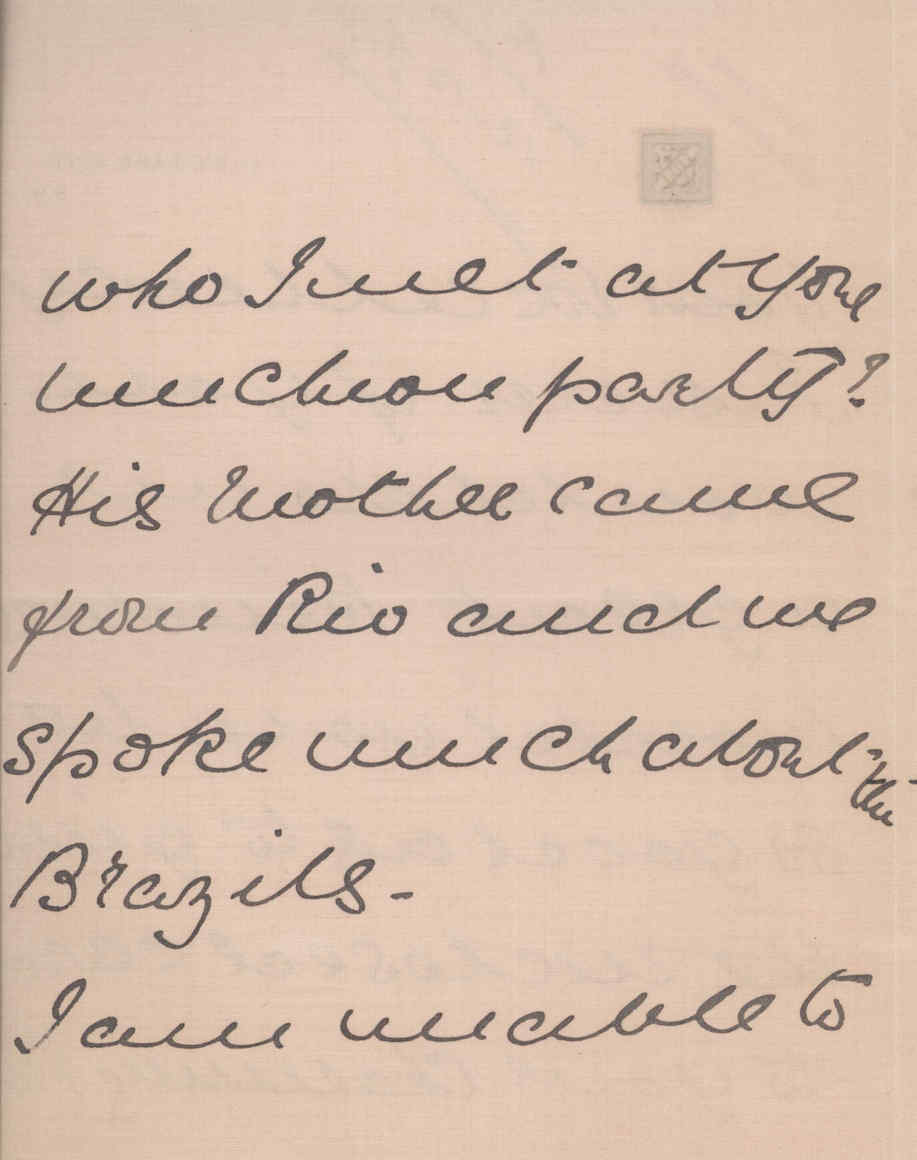 who I met at your
luncheon party?
His Mother came
from Rio and we
spoke much about the
Brazils -
I am unable to